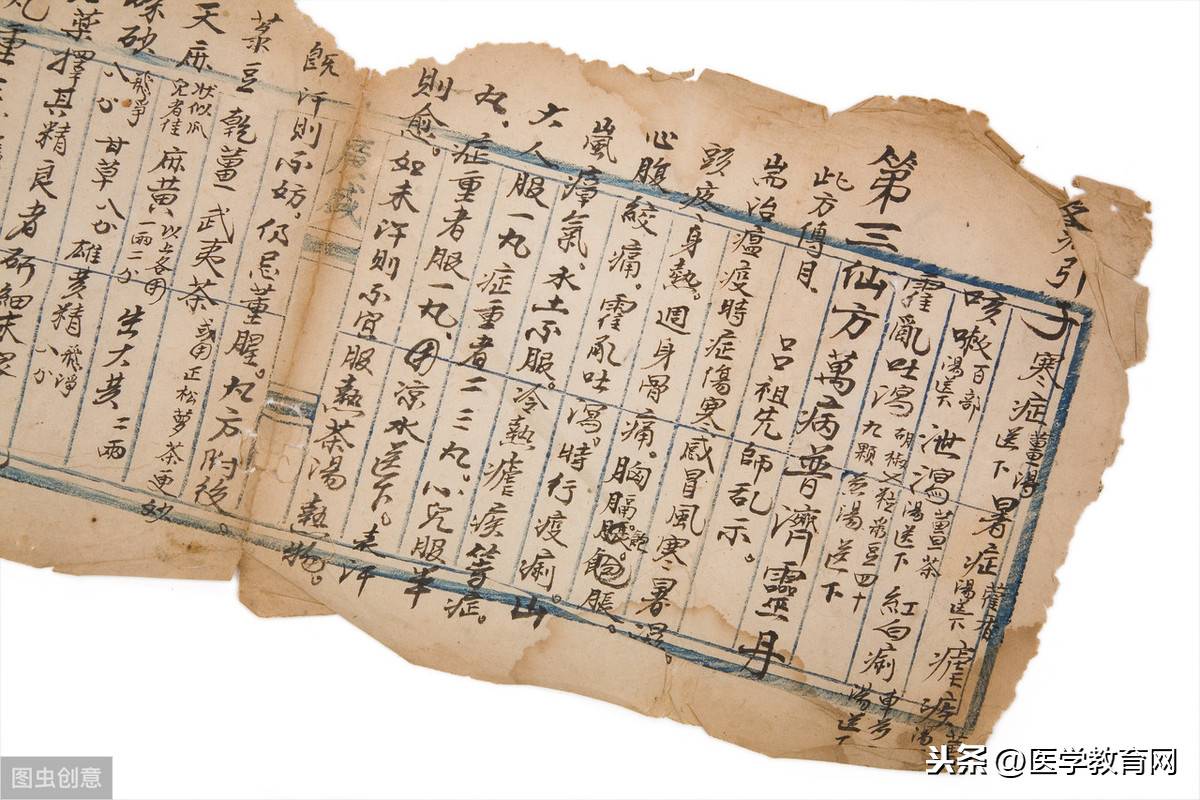 引子 寒症薑湯送下 暑症藿香湯送下 瘧疾
咳嗽百部湯送下 泄瀉薑茶湯送下 紅白痢車前湯送下
霍亂吐瀉胡椒九顆菉豆四十煎湯送下
第三仙方萬病普濟靈丹
此方傅自 呂祖先師乩示。
耑治瘟疫時症傷寒感冒風寒暑濕。
頭疼身熱。週身骨痛。胸膈飽脹。
心腹絞痛。霍亂吐瀉。時行疫痢。山
嵐瘴氣。水土不服。冷熱瘧疾等症。
大人服一丸症重者二三丸。小兒服半
丸、症重者服一丸。用凉水送下。表汗
則愈。如未汗則不宜服熱茶湯熱物。
既汗則不妨，仍忌葷腥。丸方附後。
菉豆 乾薑 武夷茶或用正松蘿茶更妙
天麻狀似瓜兒者佳 麻黃、以上各用一兩二分 生大黃二兩
砂八分飛净 甘草八分 雄黃精飛净八分
藥擇其精良者研細末
图虫创意
头条 @医学教育网